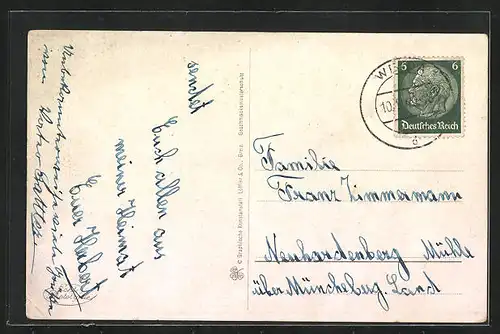 sendet
Euch allen aus
meiner Heimat
Euer Herbert
Unbekannterweise viele Grüße
von
© Graphische Kunstanstalt Löffler & Co., Greiz
WI
10.
6 6
Deutsches Reich
c
Familie
Franz Zimmermann
Neuhardenberg Mühle
über Müncheberg-Land